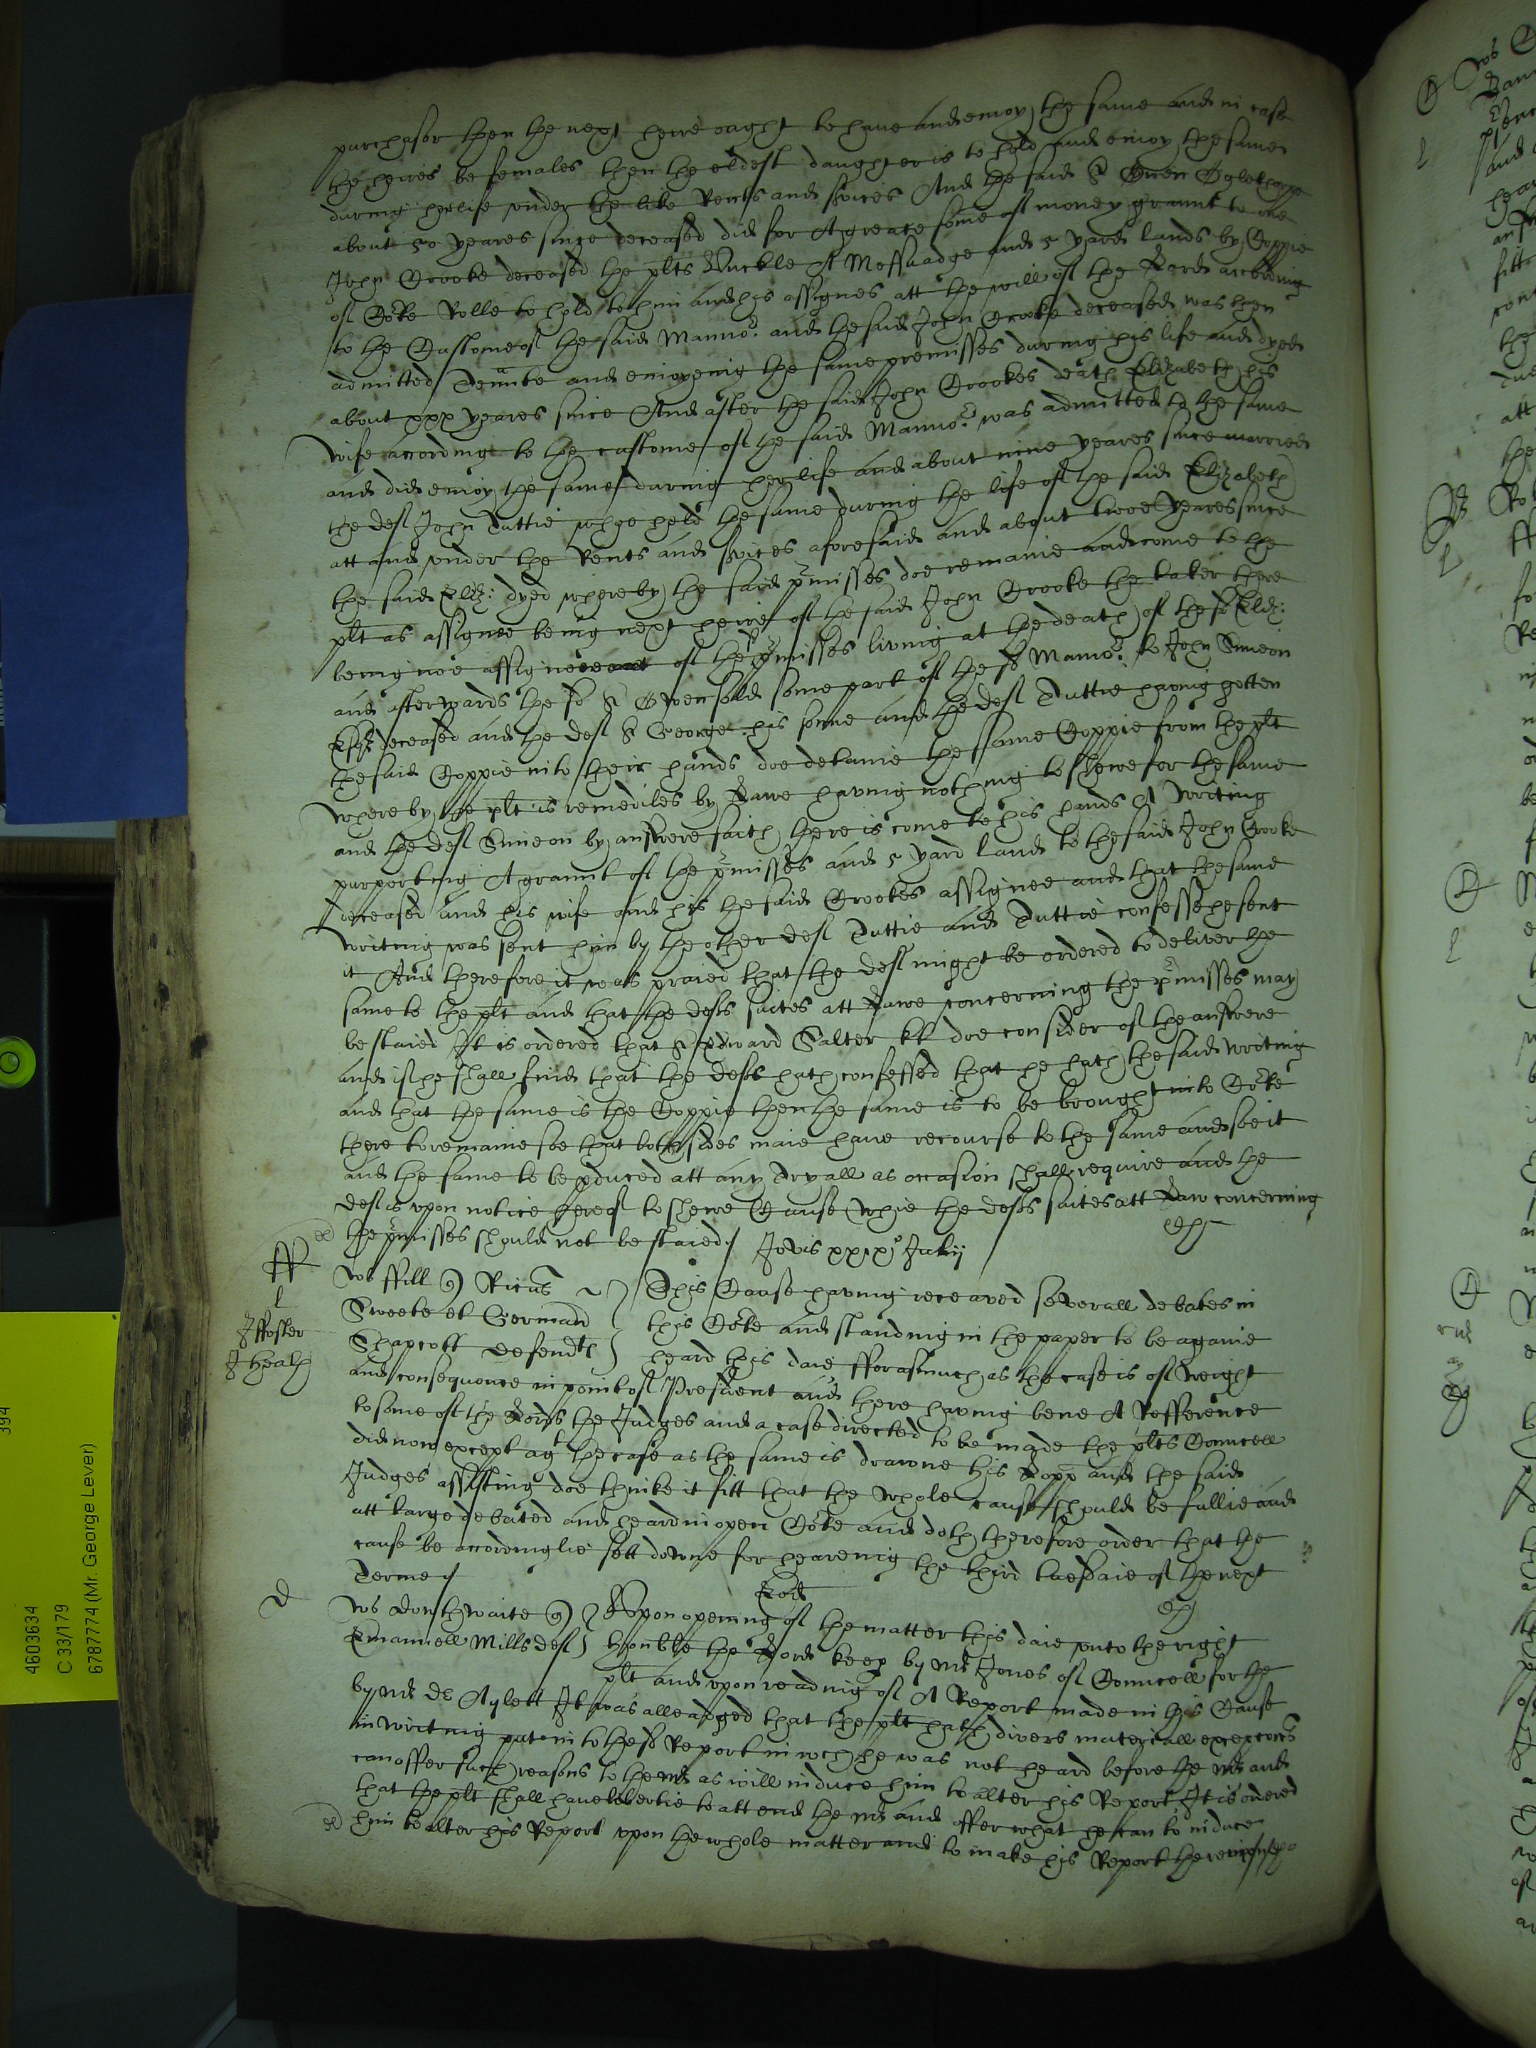 purchasor then the next heire ought to have and enioy the same and in case
the heires be females then the eldest daughter is to hold and enioy the same
during her life under the like Rents and s͠vices And the said Sr Owen Oglethorpe
about 50 yeares since deceased did for A greate some of money graunt to one
John Crooke deceased the plts Unckle A Messuadge and 5 yard lands by Coppie
of Corte Rolle to hold to him and his assignes att the will of the Lord according
to the Custome of the said Mannor and the said John Crooke deceased was then
admitted Tennte and enioyenig the same premisses during his life and dyed
about xxx yeares since And after the said John Crookes death Elizabeth his
wife according to the custome of the said Mannor was admitted to the same
and did enioy the same during her life and about nine yeares since married
the deft John Tuttie whoe held the same during the life of the said Elizabeth
att and under the Rents and s͠vices aforesaid and about twoe yeares since
the said Eliz: dyed whereby the said p͠misses doe remaine and come to the
plt as assignee being next heire of the said John Crooke the taker there
being noe assignee of the p͠misses living at the death of the sd Eliz:
and afterwards the sd Sr Owen sold some part of the sd Mannor to John Simeon
Esqr deceased and the deft Sr George his sonne and the deft Tuttie having gotten
the said Coppie into their hands doe detaine the same Coppie from the plt
whereby the plt is remediles by Lawe having nothing to shewe for the same
and the deft Simeon by answere saith there is come to his hands A writing
purporting A graunt of the p͠misses and 5 yard land to the said John Crooke
deceased and his wife and his the said Crookes assignee and that the same
writing was sent him by the other deft Tuttie and Tuttie confesse he sent
it And therefore it was praied that the deft might be ordered to deliver the
same to the plt and that the defts suites att Lawe concerning the p͠misses may
be staied It is ordered that Sr Edward Salter kt doe consider of the answere
and if he shall find that the defts hath confessed that he hath the said writing
and that the same is the Coppie then the same is to be brought into Corte
there to remaine soe that both sides maie have recourse to the same and soe it
and the same to be p͠duced att any tryall as occasion shall require and the
deft is upon notice hereof to shewe Cause whie the defts suites att Law concerning
the p͠misses should not be staied
Jovis xxxj° Julij
ff
l
J ffoster
J Heath
ffill Ricus
Sweete et German
Shapcott defendts
This Cause having receaved severall debates in
this Corte and standing in the paper to be againe
heard this daie fforasmuch as the case is of weight
and consequence in point of President and there having bene A Refference
to some of the Lords the Judges and a case directed to be made the plts Councell
did now except agt the case as the same is drawne his Lopp and the said
Judges assisting doe thinke it fitt that the whole cause should be fullie and
att large debated and heard in open Corte and doth therefore order that the
cause be accordinglie sett downe for hearing the third tuesdaie of the next
Terme
D
Eod
Douthwaite
Emanuell Mills deft
Upon opening of the matter this daie unto the right
honble the Lord keep by Mr Jones of Councell for the
plt and upon reading of A Report made in this Cause
by Mr Dr Aylett It was alleadged that the plt hath divers materiall excepcons
in writing put in to the sd Report in wch he was not heard before the Mr and
can offer such reasons to the Mr as will induce him to alter his Report It is ordered
that the plt shall have libertie to attend the Mr and offer what he can to induce
him to alter his Report upon the whole matter and to make his Report thereupon
4603634
C 33/179
6787774 (Mr. George Lever)
394